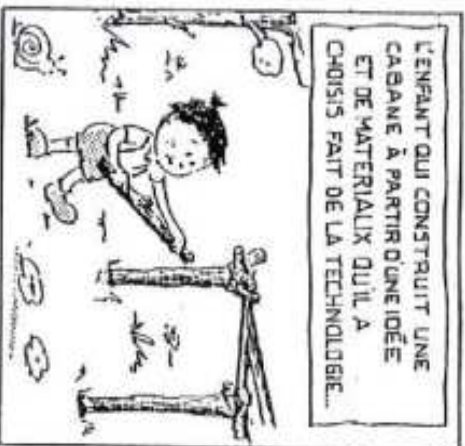 L'ENFANT QUI CONSTRUIT UNE
CABANE À PARTIR D'UNE IDÉE
ET DE MATERIAUX QU'IL A
CHOISIS FAIT DE LA TECHNOLOGIE...